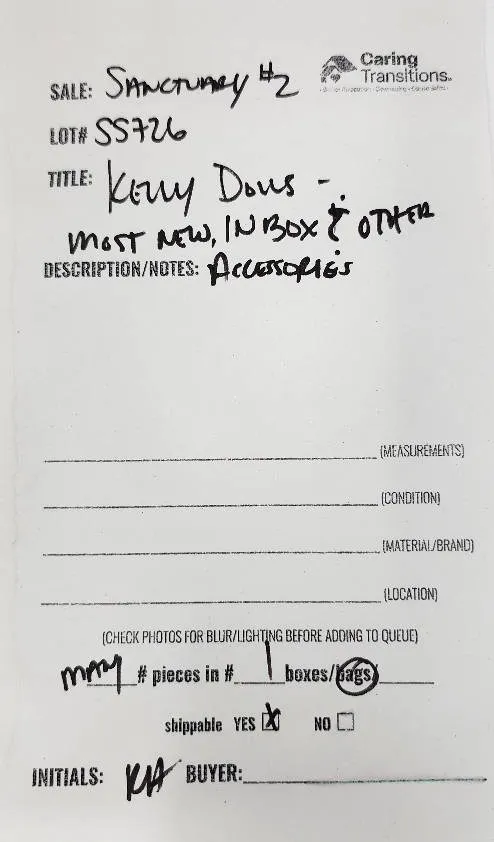 SALE: SANCTUARY #2
Caring
Transitions®
LOT# SS726
TITLE: KELLY DOLLS -
MOST NEW, IN BOX & OTHER
DESCRIPTION/NOTES: ACCESSORIES
(MEASUREMENTS)
(CONDITION)
(MATERIAL/BRAND)
(LOCATION)
(CHECK PHOTOS FOR BLUR/LIGHTING BEFORE ADDING TO QUEUE)
MANY # pieces in # 1 boxes/bags/
shippable YES X NO
INITIALS: BUYER: